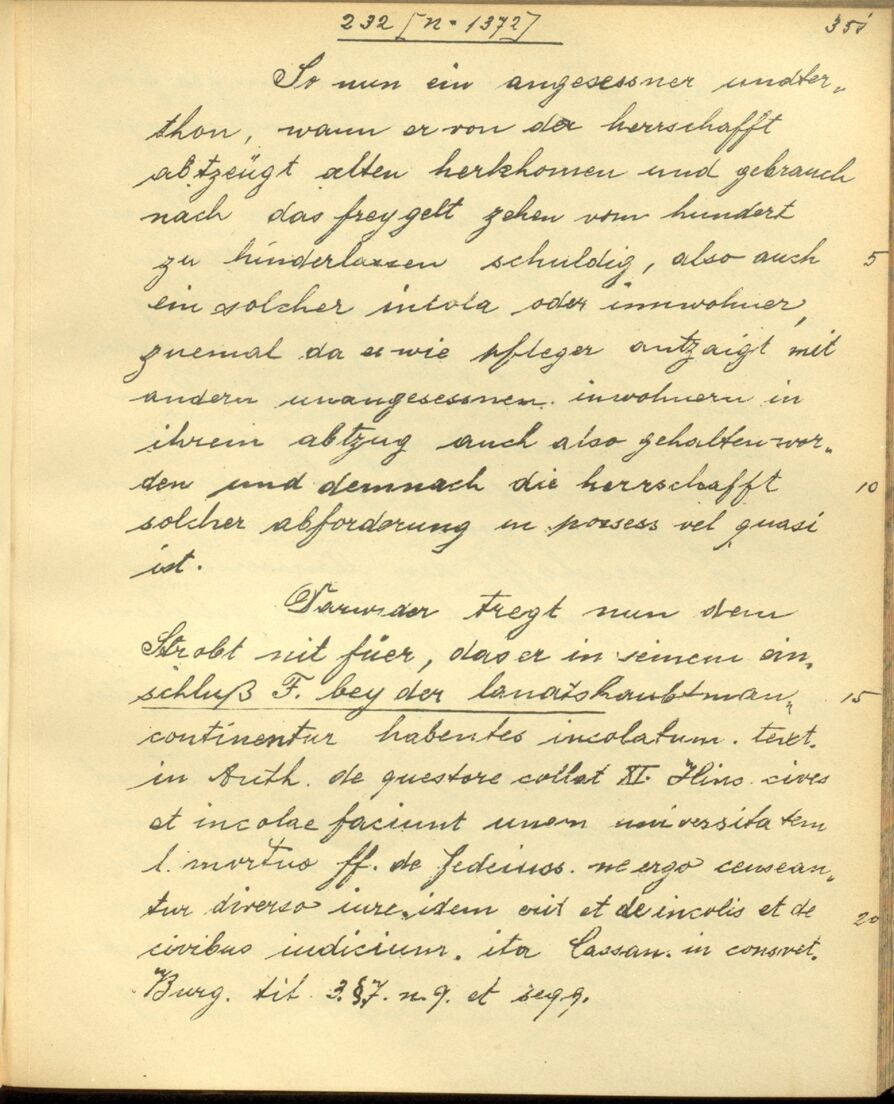 232 [N. 1372] 351
So nun ein angesessner undter„
thon, wann er von der herrschafft
abtzeügt alten herkhomen und gebrauch
nach das freygelt zehen vom hundert
zu hinderlassen schuldig, also auch 5
ein solcher incola oder innwohner,
zuemal da es wie pfleger antzaigt mit
andern unangesessnen inwohnern in
ihrem abtzug auch also gehalten wor„
den und demnach die herrschafft 10
solcher abforderung in possess vel quasi
ist.
Darwider tregt nun dem
Strobt nit füer, das er in seinem ein„
schluß F. bey der landtshaubtman„ 15
continentur habentes incolatum. text.
in Auth. de questore collat XI. Hinc cives
et incolae faciunt unam universitatem
l. mortuo ff. de fedeiuss. ne ergo censean„
tur diverso iure, idem erit et de incolis et de 20
civibus iudicium. ita Cassan. in consvet.
Burg. tit 3. §7. n. 9. et seqq.